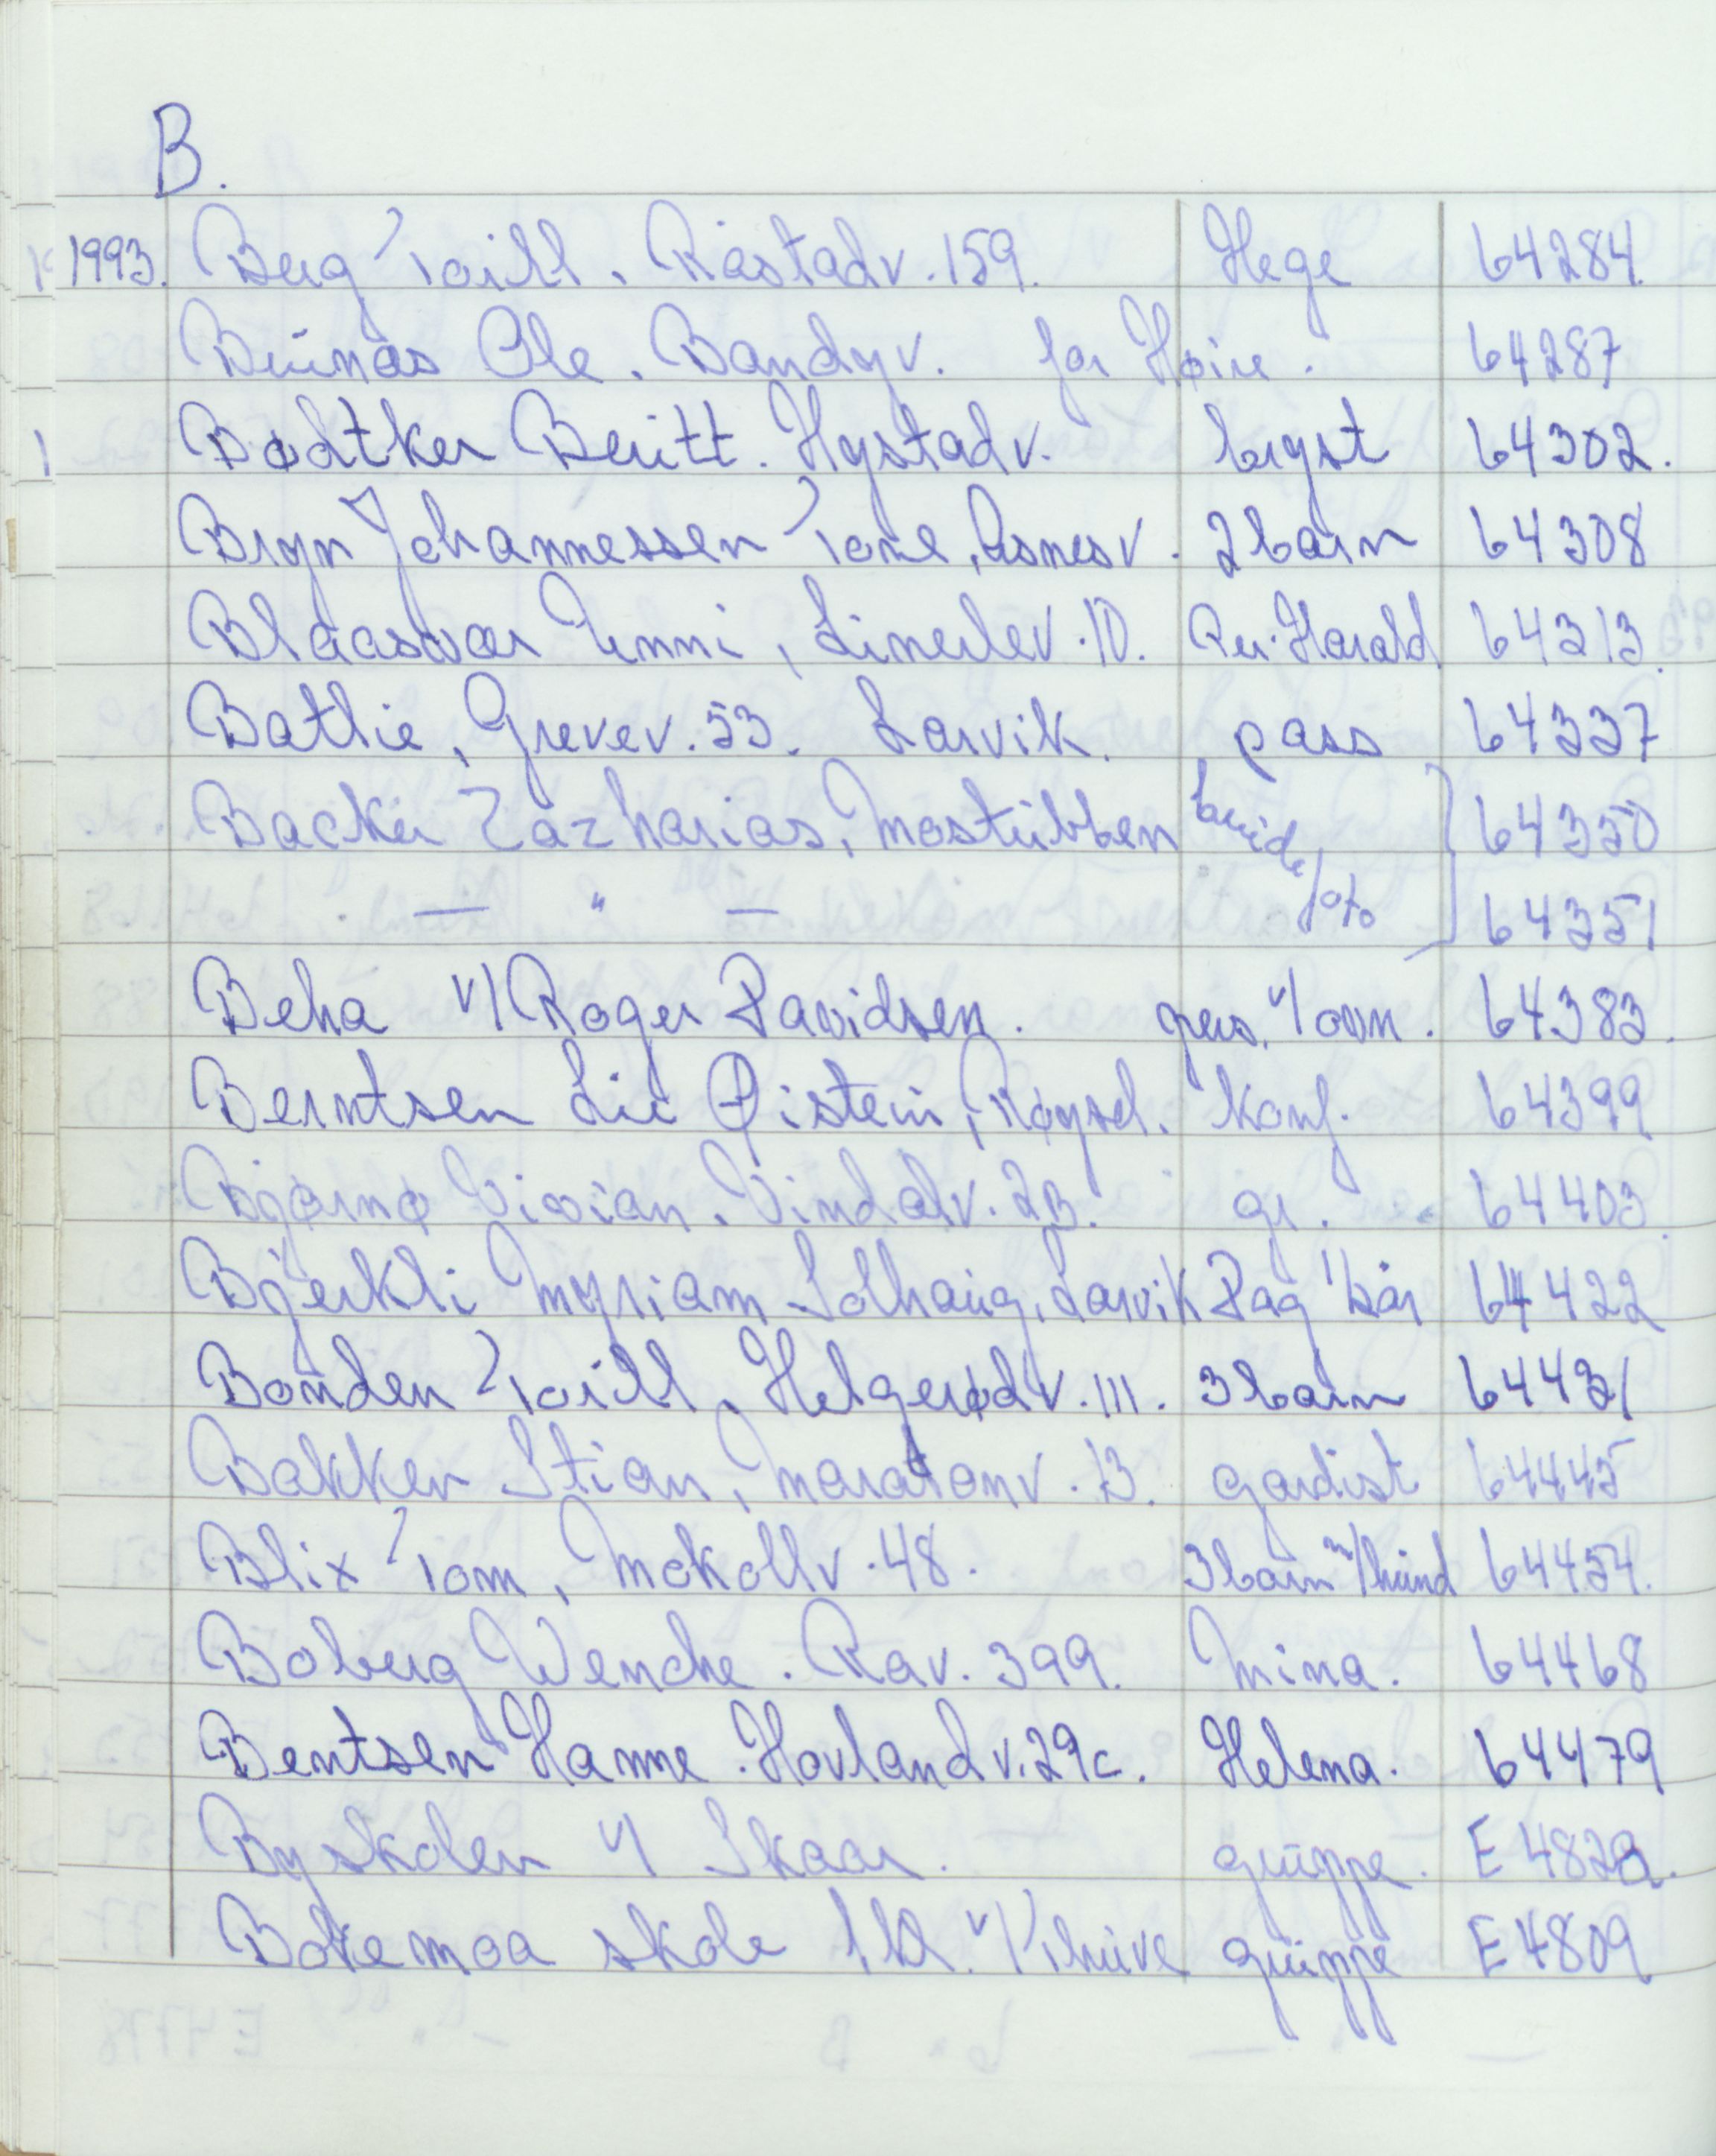 B.
1993. Berg Torill. Råstadv. 159. Hege 64284.
Buinas Ole. Bandyv. for Høire. 64287
Bødtker Beritt. Hystadv. bryst 64302.
Bryn Johannessen Tone, Åsnesv. 2 barn 64308
Blaasvær Unni, Linerlev. 10. Per-Harald 64313.
Bathie, Grevev. 53. Larvik. pass 64337
Backer Zazharias, Mostubben brude foto 64350
— " — 64351
Beha v/ Roger Davidsen. pers. v/ 64383.
Berntsen Lie Øistein, Røysel. konf. 64399
Bjørnø Vivian. Vindalv. 2B. gr. 64403.
Bjerkli Myriam Solhaug, Larvik Dag 1/2år 64422
Bonden Torill, Helgerødv. 111. 3 barn 64431
Bakken Stian, Maratonv. 13. gardist 64445
Blix Tom, Mokollv. 48. 3 barn m/hund 64454.
Boberg Wenche. Rav. 399. Mina. 64468
Bentsen Hanne. Hovlandv. 29c. Helena. 64479
Byskolen v/ Skaar. gruppe. E 4829.
Bokemoa skole 1.kl. v/ gruppe E 4809